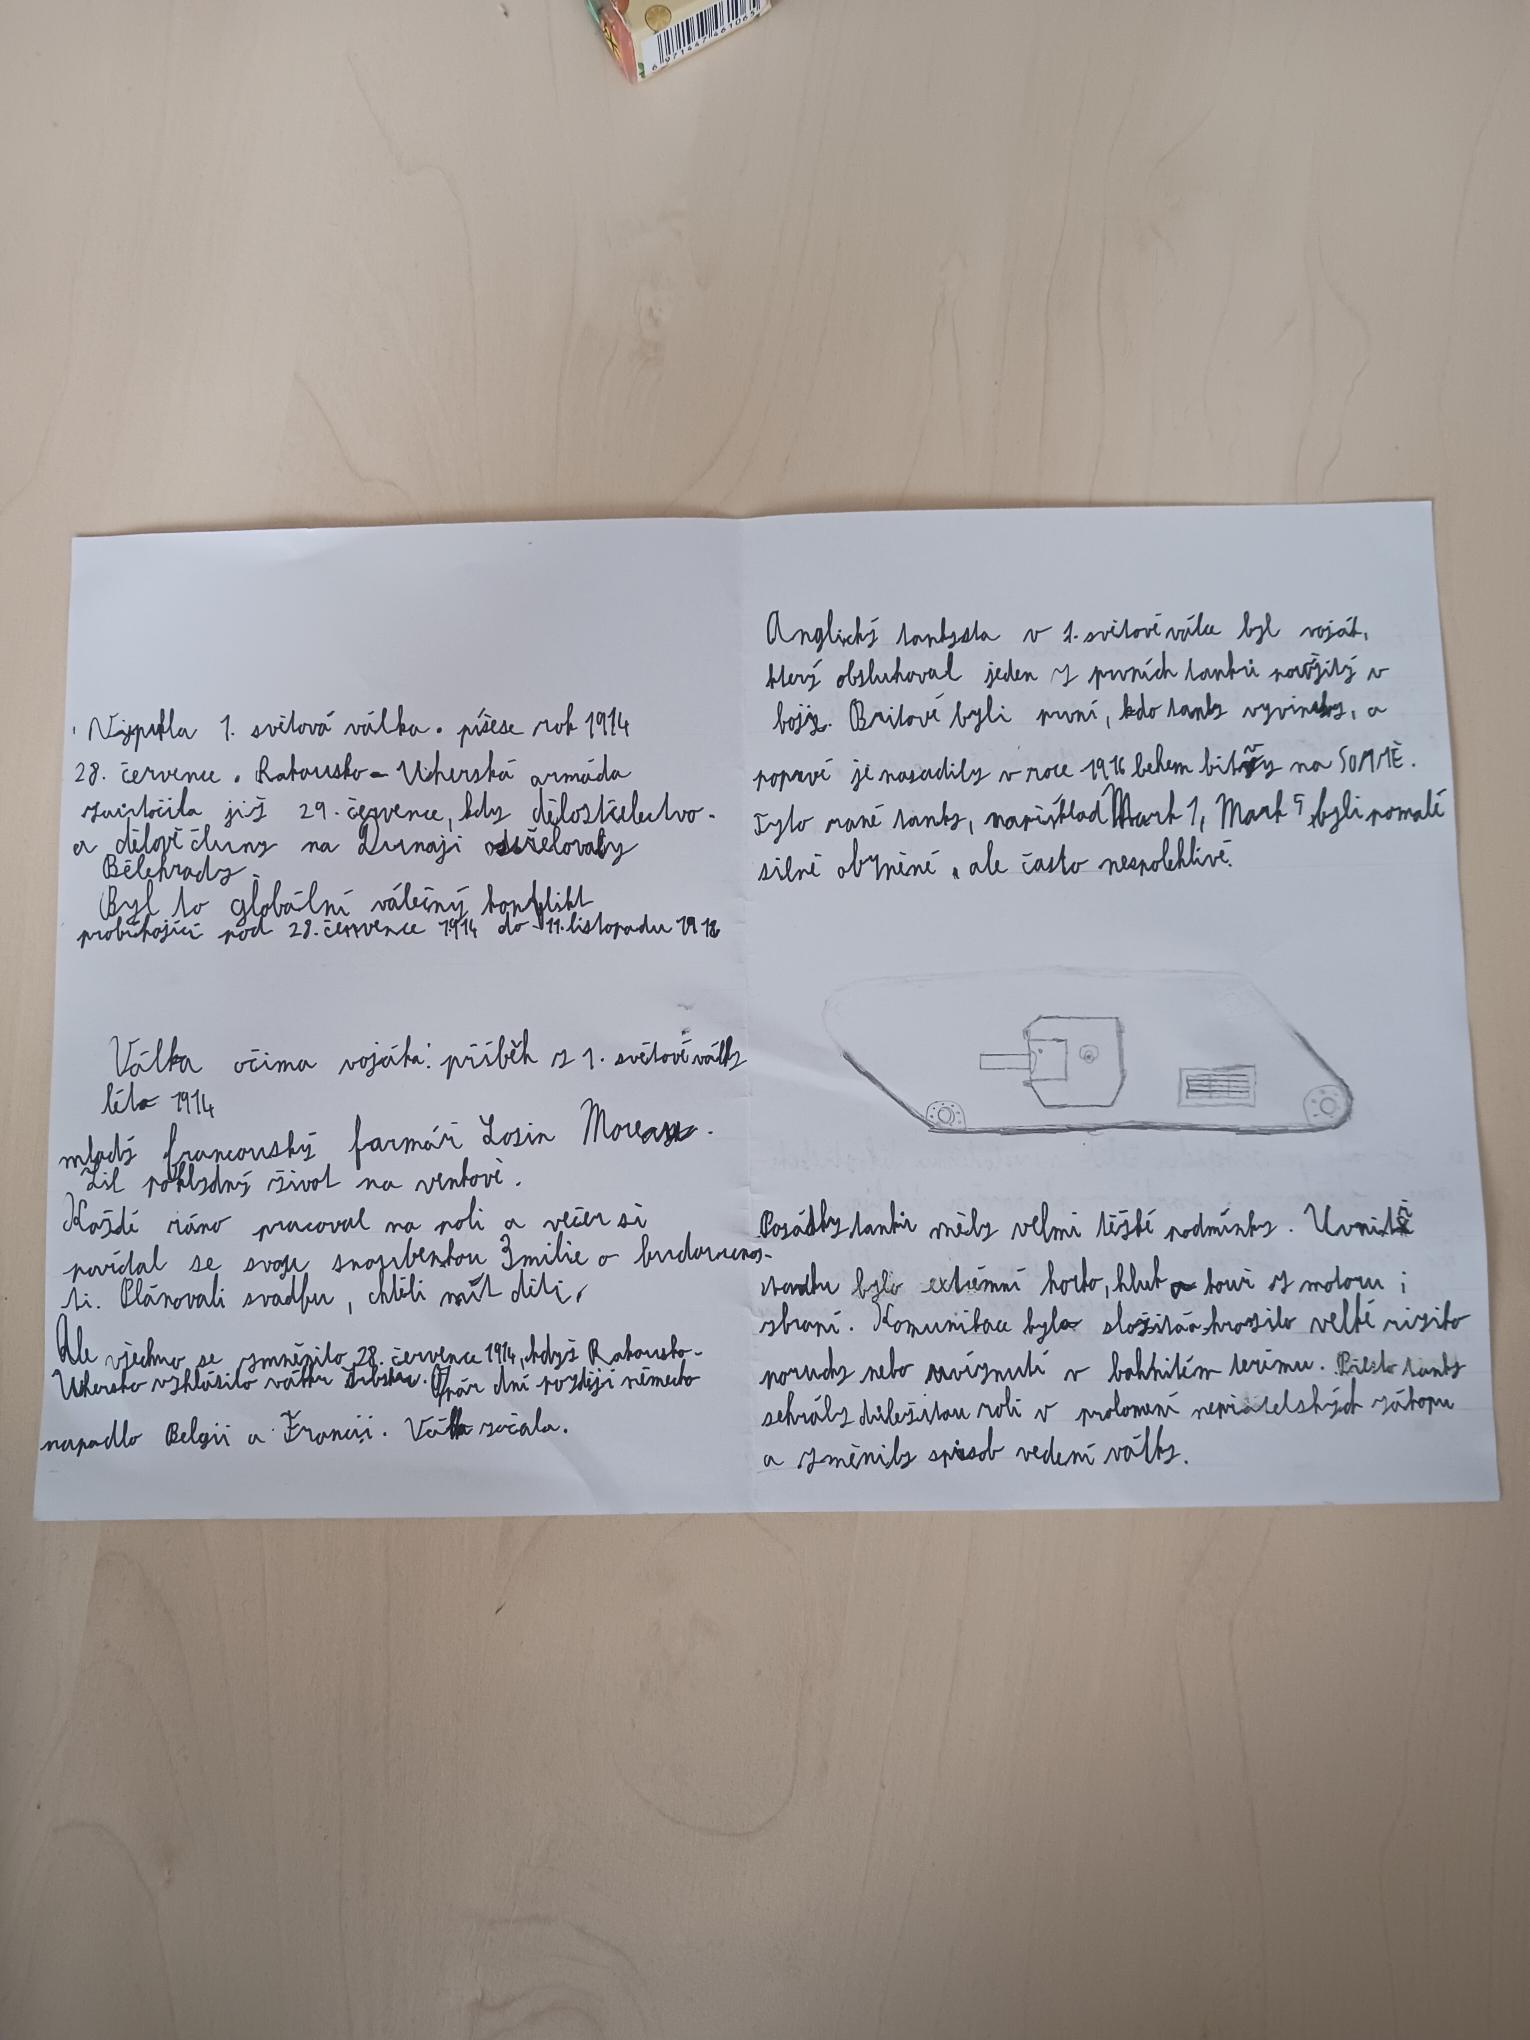 6 971447 461063
Vypukla 1. světová válka. píšese rok 1914
28. července. Rakousko-Uherská armáda
zaútočila již 29. července, kdy dělostřelectvo
a dělové čluny na Dunaji odstřelovaly
Bělehrady.
Byl to globální válečný konflikt
probíhající pod 28. července 1914 do 11. listopadu 1918
Válka očima vojáka: příběh z 1. světové války
léto 1914
mladý francouský farmář Losin Moreau.
Žil poklydný život na venkově.
Každé ráno pracoval na poli a večer si
povídal se svoju snoubenkou Emilie o budoucnos-
ti. Plánovali svadbu, chtěli mít děti,
Ale vjechno se změnilo 28. července 1914, když Rakousko-
Uhersko vyhlásilo válku Srbsku. O pár dní později německo
napadlo Belgii a Francii. Válka začala.
Anglický tankysta v 1. světové válce byl voják,
který obsluhoval jeden z prvních tanků použitý v
boji. Britové byli první, kdo tanky vyvinuly, a
poprvé je nasadily v roce 1916 behem bitvy na SOMMĚ.
Tyto rané tanky, například Mark 1, Mark 5, byli pomalé
silně obrněné, ale často nespolehlivé.
Posádky tanků měly velmi těžké podmínky. Uvnitř
tanku bylo extrémní horko, hluk a kouř z motoru i
zbraní. Komunikace byla složitá a hrozilo velké riziko
poruchy nebo uvíznutí v bahnitém terénu. Přesto tanky
sehrály důležitou roli v prolomení nepřátelských zákopu
a změnily spůsob vedení války.